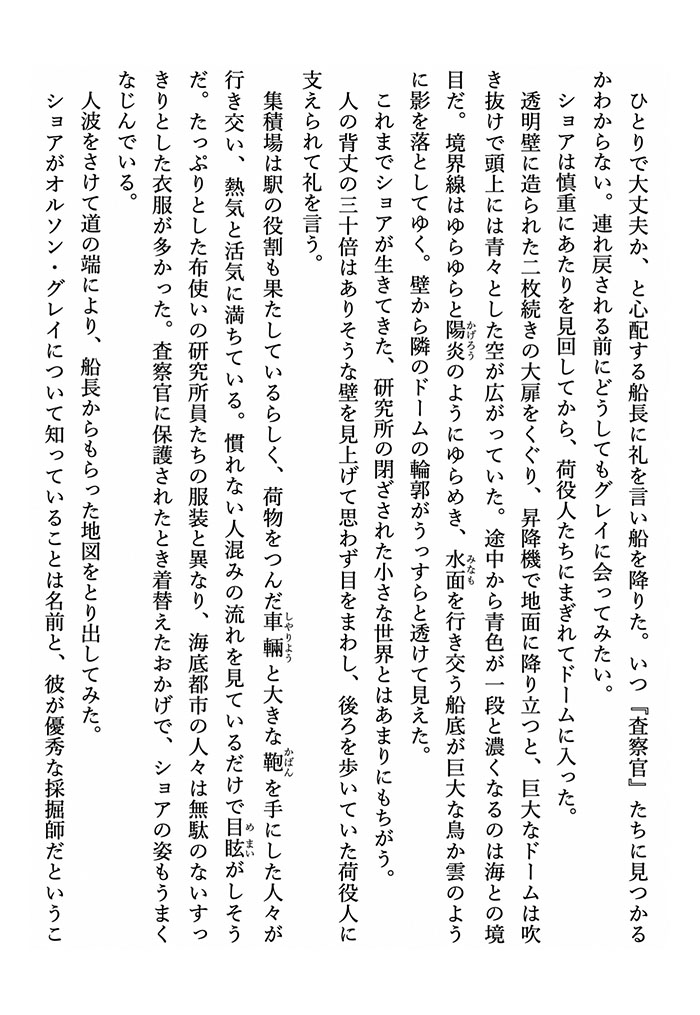 ひとりで大丈夫か、と心配する船長に礼を言い船を降りた。いつ『査察官』たちに見つかる
かわからない。連れ戻される前にどうしてもグレイに会ってみたい。
ショアは慎重にあたりを見回してから、荷役人たちにまぎれてドームに入った。
透明壁に造られた二枚続きの大扉をくぐり、昇降機で地面に降り立つと、巨大なドームは吹
き抜けで頭上には青々とした空が広がっていた。途中から青色が一段と濃くなるのは海との境
目だ。境界線はゆらゆらと陽炎のようにゆらめき、水面を行き交う船底が巨大な鳥か雲のよう
に影を落としてゆく。壁から隣のドームの輪郭がうっすらと透けて見えた。
これまでショアが生きてきた、研究所の閉ざされた小さな世界とはあまりにもちがう。
人の背丈の三十倍はありそうな壁を見上げて思わず目をまわし、後ろを歩いていた荷役人に
支えられて礼を言う。
集積場は駅の役割も果たしているらしく、荷物をつんだ車輛と大きな鞄を手にした人々が
行き交い、熱気と活気に満ちている。慣れない人混みの流れを見ているだけで目眩がしそう
だ。たっぷりとした布使いの研究所員たちの服装と異なり、海底都市の人々は無駄のないすっ
きりとした衣服が多かった。査察官に保護されたとき着替えたおかげで、ショアの姿もうまく
なじんでいる。
人波をさけて道の端により、船長からもらった地図をとり出してみた。
ショアがオルソン・グレイについて知っていることは名前と、彼が優秀な採掘師だというこ